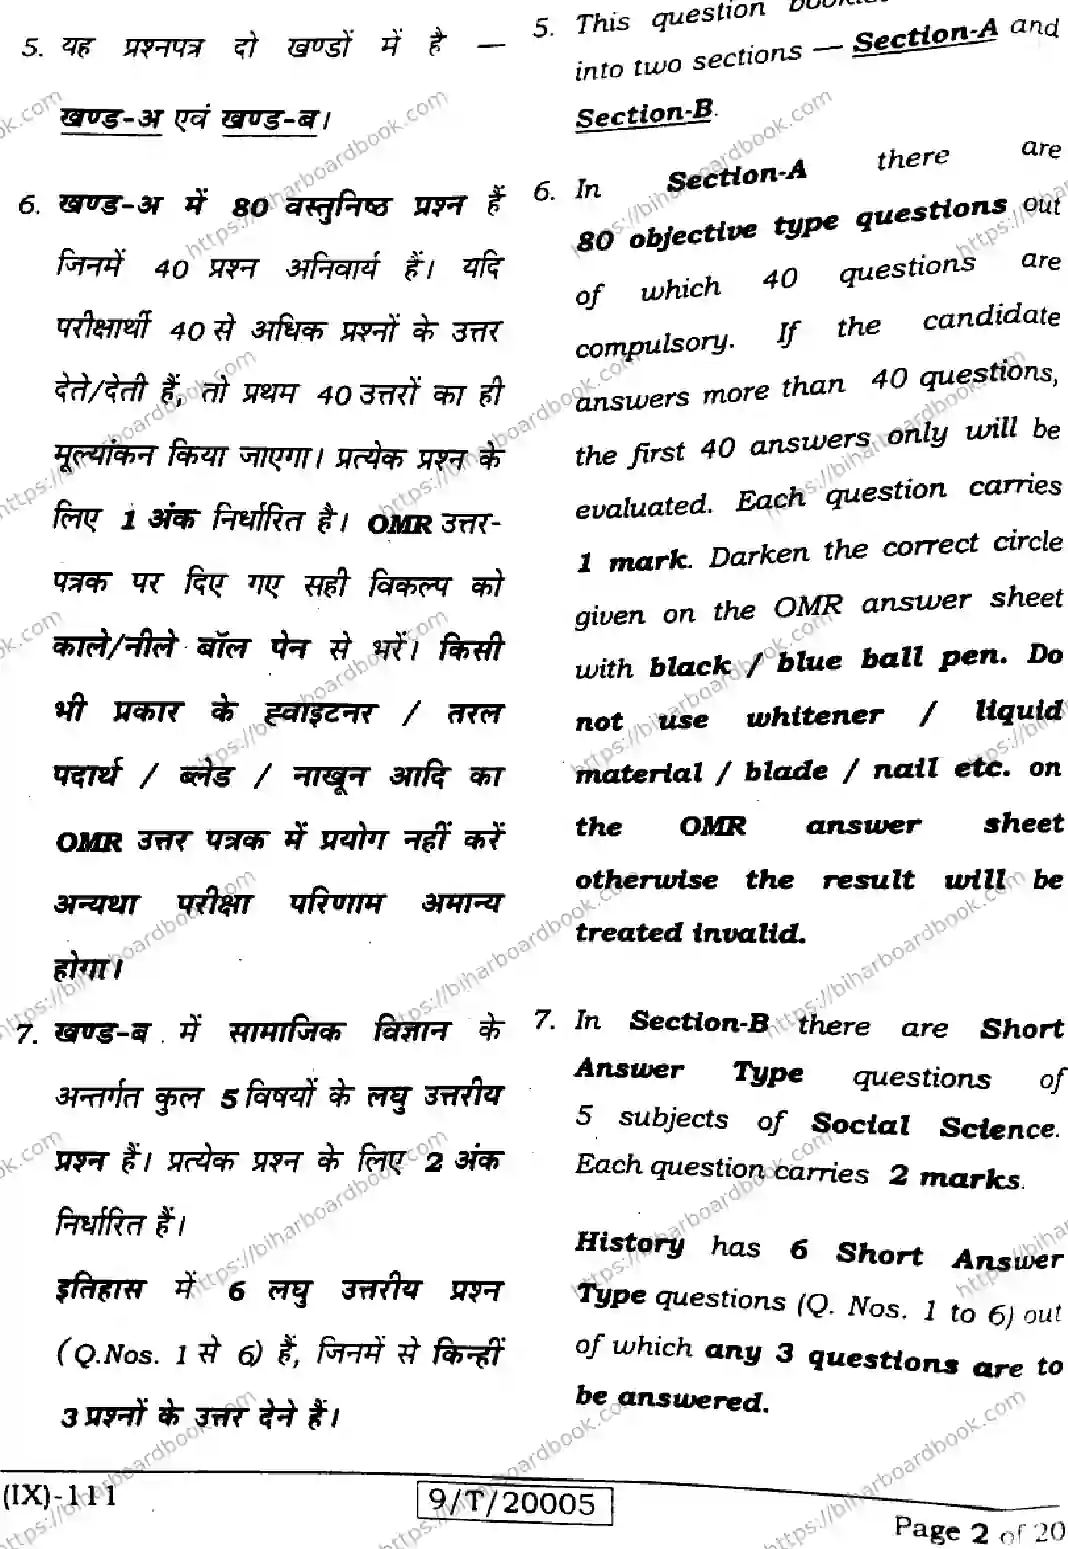 5. यह प्रश्नपत्र दो खण्डों में है —
खण्ड-अ एवं खण्ड-ब।
6. खण्ड-अ में 80 वस्तुनिष्ठ प्रश्न हैं
जिनमें 40 प्रश्न अनिवार्य हैं। यदि
परीक्षार्थी 40 से अधिक प्रश्नों के उत्तर
देते/देती हैं, तो प्रथम 40 उत्तरों का ही
मूल्यांकन किया जाएगा। प्रत्येक प्रश्न के
लिए 1 अंक निर्धारित है। OMR उत्तर-
पत्रक पर दिए गए सही विकल्प को
काले/नीले बॉल पेन से भरें। किसी
भी प्रकार के ह्वाइटनर / तरल
पदार्थ / ब्लेड / नाखून आदि का
OMR उत्तर पत्रक में प्रयोग नहीं करें
अन्यथा परीक्षा परिणाम अमान्य
होगा।
7. खण्ड-ब में सामाजिक विज्ञान के
अन्तर्गत कुल 5 विषयों के लघु उत्तरीय
प्रश्न हैं। प्रत्येक प्रश्न के लिए 2 अंक
निर्धारित हैं।
इतिहास में 6 लघु उत्तरीय प्रश्न
(Q.Nos. 1 से 6) हैं, जिनमें से किन्हीं
3 प्रश्नों के उत्तर देने हैं।
5. This question
into two sections — Section-A and
Section-B.
6. In Section-A there are
80 objective type questions out
of which 40 questions are
compulsory. If the candidate
answers more than 40 questions,
the first 40 answers only will be
evaluated. Each question carries
1 mark. Darken the correct circle
given on the OMR answer sheet
with black / blue ball pen. Do
not use whitener / liquid
material / blade / nail etc. on
the OMR answer sheet
otherwise the result will be
treated invalid.
7. In Section-B there are Short
Answer Type questions of
5 subjects of Social Science.
Each question carries 2 marks.
History has 6 Short Answer
Type questions (Q. Nos. 1 to 6) out
of which any 3 questions are to
be answered.
(IX)-111
9/T/20005
Page 2 of 20
https://biharboardbook.com